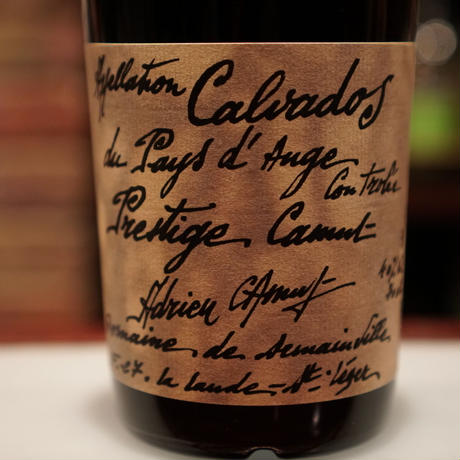 Appellation Calvados
du Pays d'Auge
Controlée
Prestige Camut
Adrien Camut
Domaine de Semainville
la Lande-St Léger